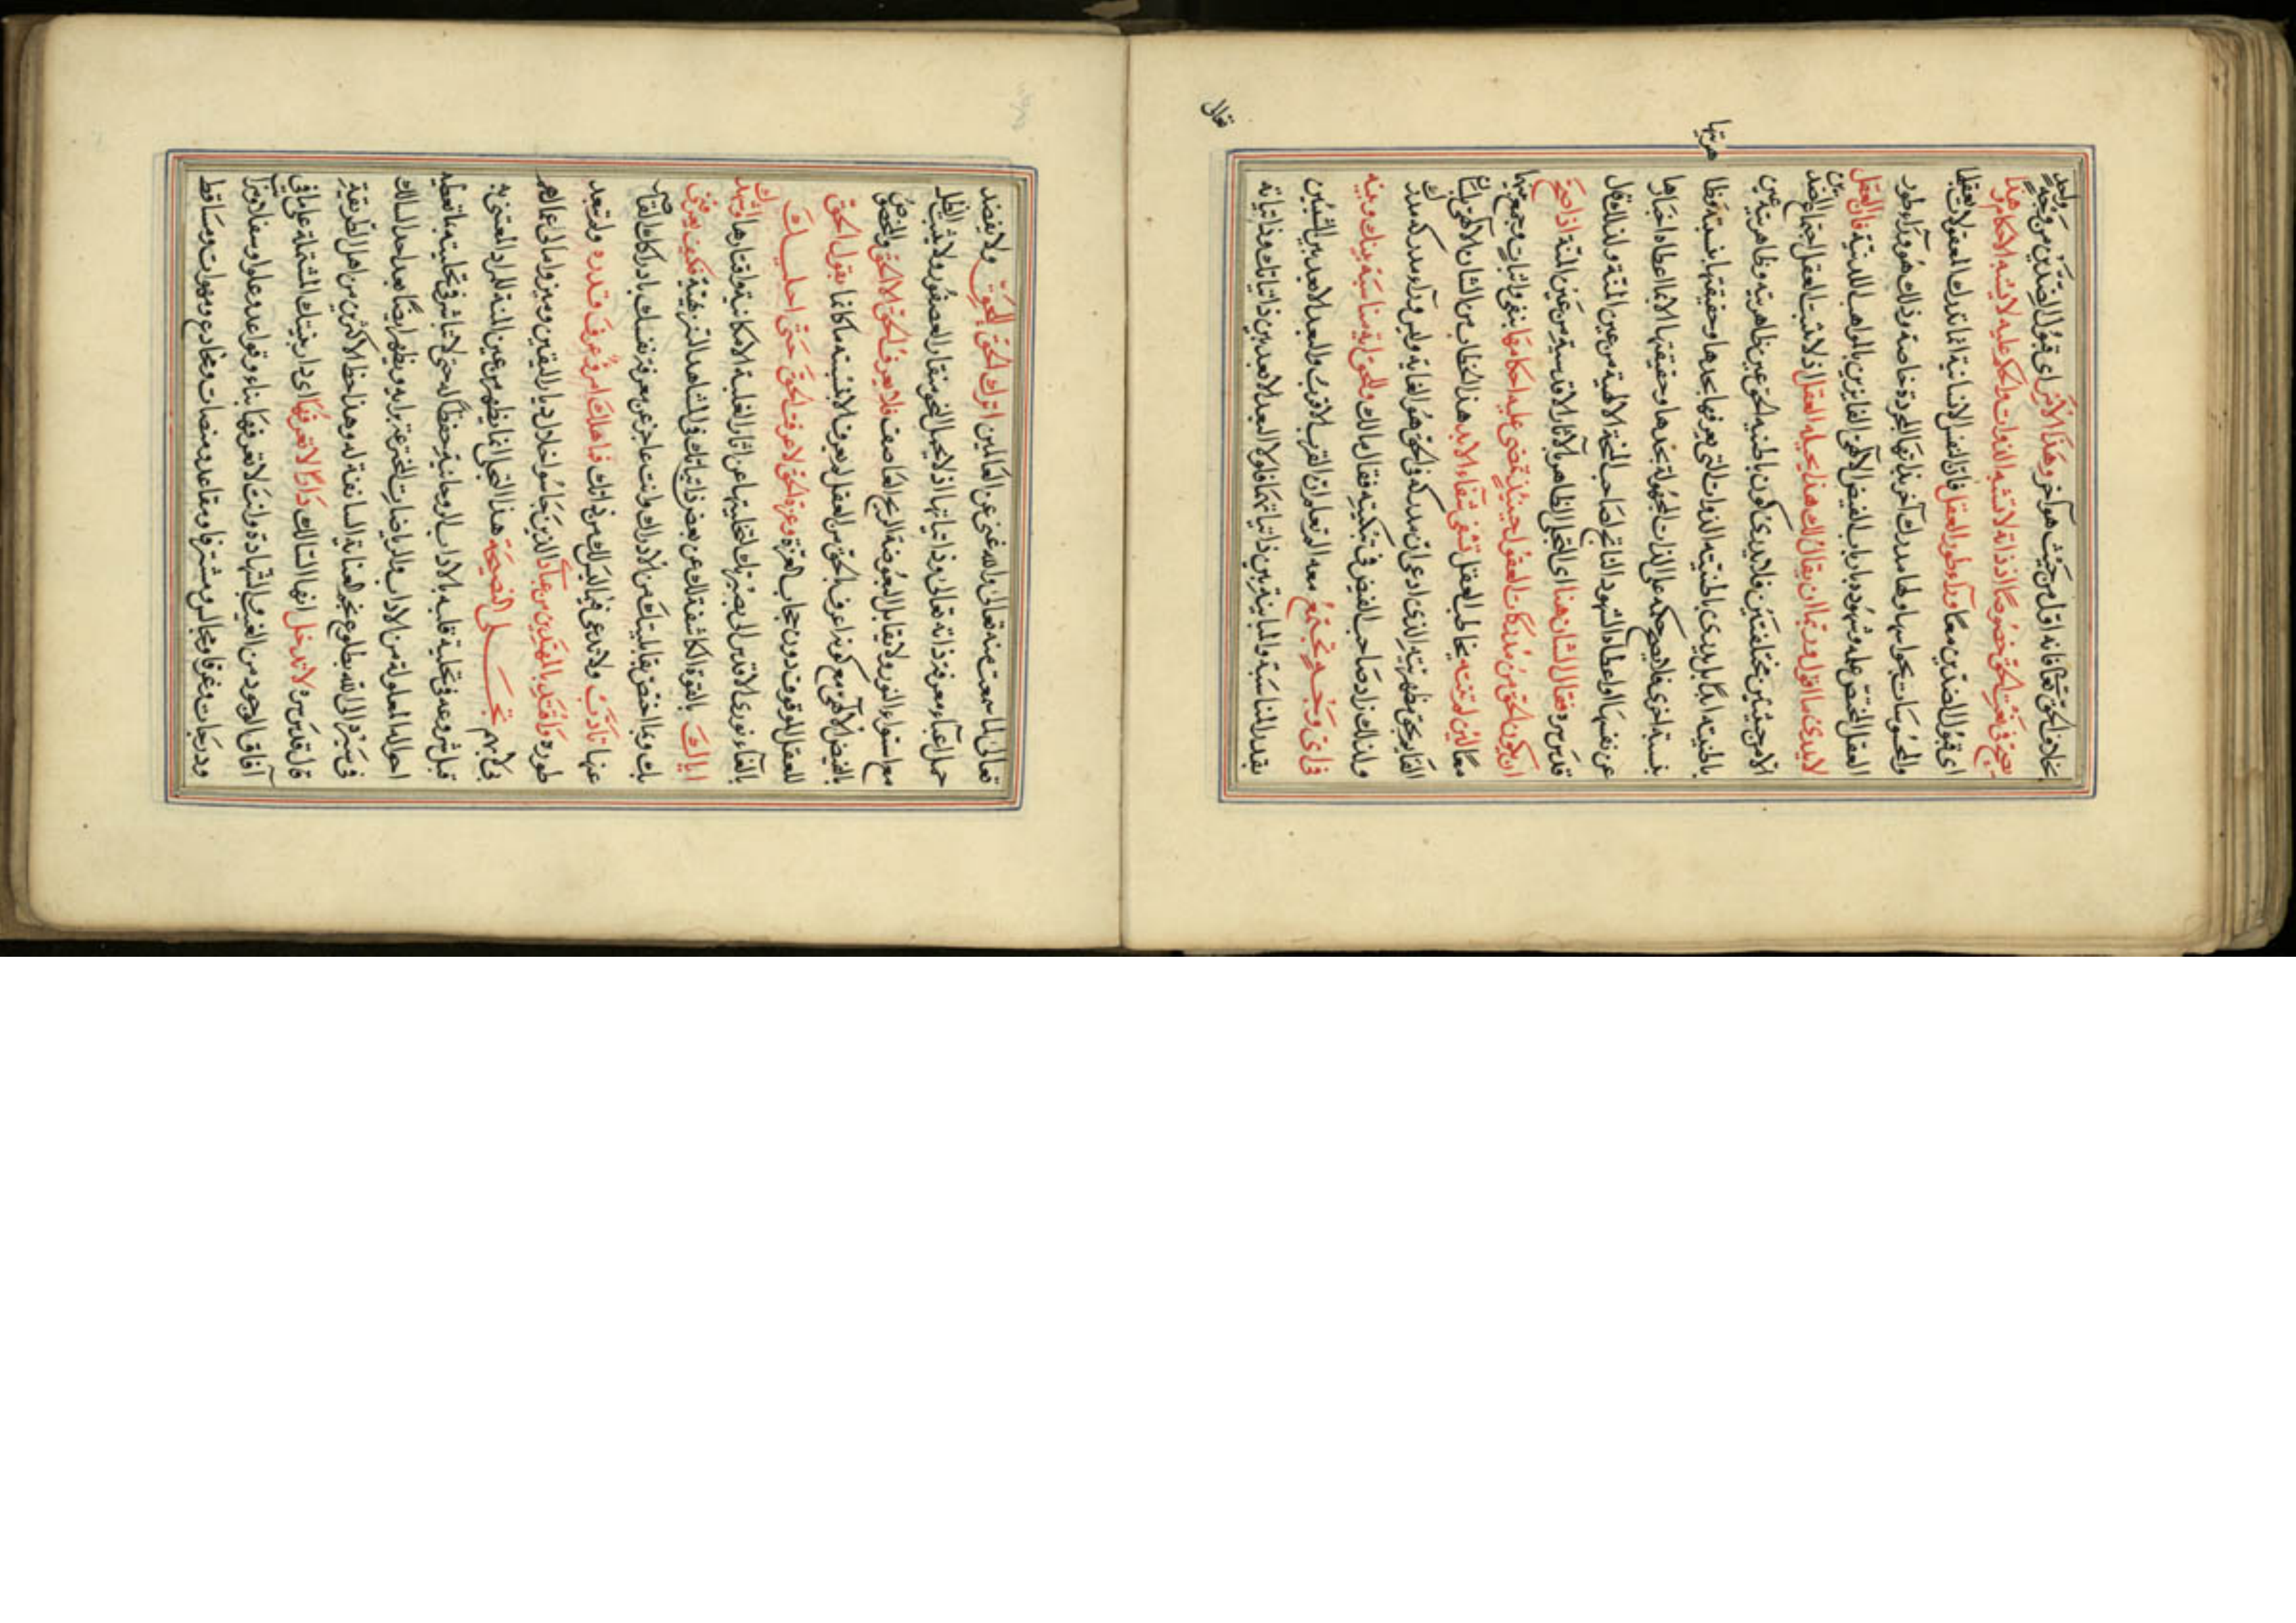 بخلاف الحق تعالى فانه اول من حيث هو آخر وهذا الامر اى قبول الضدين من وجه واحد
يصح فى نعت الحق خصوصا اذ ذاته لا تشبه الذوات والحكم عليه لا يشبه الاحكام وهذا
اى قبول الضدين معا ورآء طور العقل فان النفس الانسانية انما تدرك المعقولات بعقلها
والمحسوسات بحواسها ولها مدرك آخر بذاتها المجردة خاصة وذلك هو ورآء طور
العقل المختص علمه وشهوده بارباب الفيض الالهى الفائزين بالمواهب اللدنية فان العقل
لا يدرى ما اقول وربما ان يقال لك هذا يحيله العقل اذ لا يثبت العقل اجتماع الضدين
الا من حيثيتين مختلفتين فلا يدرى كون باطنية الحق عين ظاهريته وظاهريته عين
باطنيته ابدا بل يدرى باطنيته الذوات التى يعرفها بحدها وحقيقتها بنسبة وظاهريتها
بنسبة اخرى فلا يصح حكمه على الذات المجهولة بحدها وحقيقتها الا بما اعطاه اخبارها
عن نفسها او اعطاه الشهود الناتج لصاحب المنحة الالهية من عين المنة ولذلك قال
قدس سره فقال الشان هنا اى التجلى الظاهر بالآثار الاقدسية من عين المنة اذا صح
ان يكون الحق من مدركات العقول حينئذ تمضى عليه احكامها بنفى واثبات وجمع بينهما
معا لئن لم تنته يخاطب العقل تشقى شقاء الابد هذا الخطاب من الشان الالهى
القائم بحق مظهريته الذى ادعى ان مدركه فى الحق هو الغاية وليس ورآء مدركه مدرك
ولذلك زاد صاحب الفيض فى تبكيته فقال مالك وللحق اية مناسبة بينك وبينه
فى اى وجه تجتمع معه الم تعلم ان القرب الاقرب والبعد الابعد بين الشيئين
بقدر المناسبة والمباينة بين ذاتياتهما فلا ابعد بين ذاتياتك وذاتياته
تعالى
تعالى لما سمعت منه تعالى والله غنى عن العالمين اترك الحق للحق ولا تقصد
حمل اعباء معرفة ذاته تعالى وذاتياتها اذ لا يحمل البحر منقار العصفور ولا يثبت الظل
مع استواء النور ولا تقابل البعوضة الريح العاصف فلا يعرف الحق الا الحق والمخصوص
بالفيض الالهى مع كونه اعرف بالحق من العقل لم يعرف الا نفسه ما كانما يقول الحق
للعقل الموقوف دون حجاب العزة وعزة الحق لا عرفت الحق حتى اجليك
بالقآء نورى الاقدس الى بصيرتك لتخليتها عن آثار الغلبة الامكانية واقتارها واشهدك
اياك بالقوة الكاشفة لك عن بعض ذاتياتك فى المشاهد التنزيهية فكيف تعرفنى
بك وبما اختص بقابليتك من الادراك وانت عاجز عن معرفة نفسك بادراكك القاصر
عنها تأدب ولا تدع فيما ليس لك من ذاتك فما هلك امرؤ عرف قدره ولم يتعد
طوره واقتد بالمهتدين من عباد الذين جاسوا خلال ديار اليقين وميزوا مالى عما لهم
فى لابهم تجلى النصيحة هذا التجلى انما يظهر من عين المنة للمراد المعتنى به
قبل شروعه فى تحلية قلبه بالاداب الروحانية حفظا له حتى لا تباشر فى تحليته ما تعطيه
احوالها المعلولة من الاداب والرياضات المخترعة برايه ويظهر ايضا بعد اخذ السالك
فى سيره الى الله بطلوع فجر العناية السابقة له وهذا حظ الاكثرين من اهل الطريقة
قال قدس سره لا تدخل ايها السالك دارا لا تعرفها اى دار بنيتك المشتملة على ما فى
آفاق الوجود من الغيب والشهادة وانت لا تعرفها بناء وقواعد وعلوا وسفلا وبيوتا
ودرجات وغرفا ومجالس ومشترفا ومقاعد ومنصات ومخادع ومهوات ومساقط